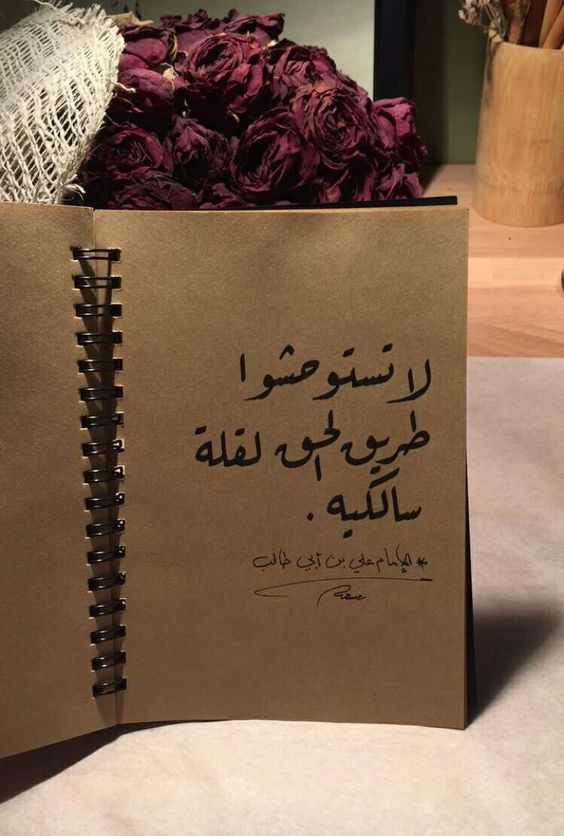 لا تستوحشوا
طريق الحق لقلة
سالكيه .
* الإمام علي بن أبي طالب